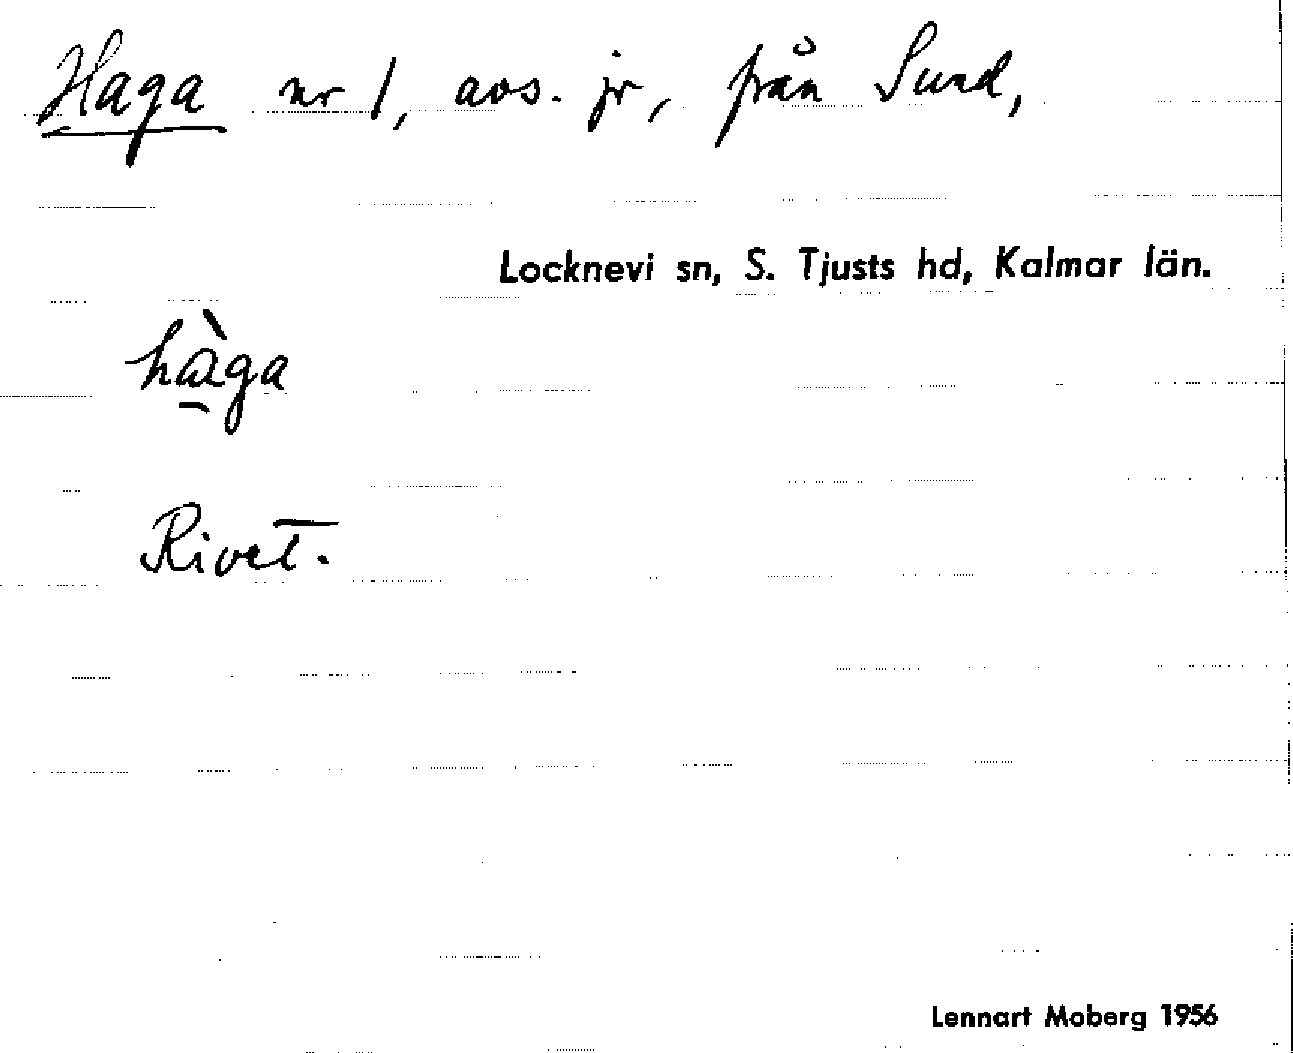 Haga nr 1, avs. jr, från Sund,
Locknevi sn, S. Tjusts hd, Kalmar län.
hàga
Rivet.
Lennart Moberg 1956